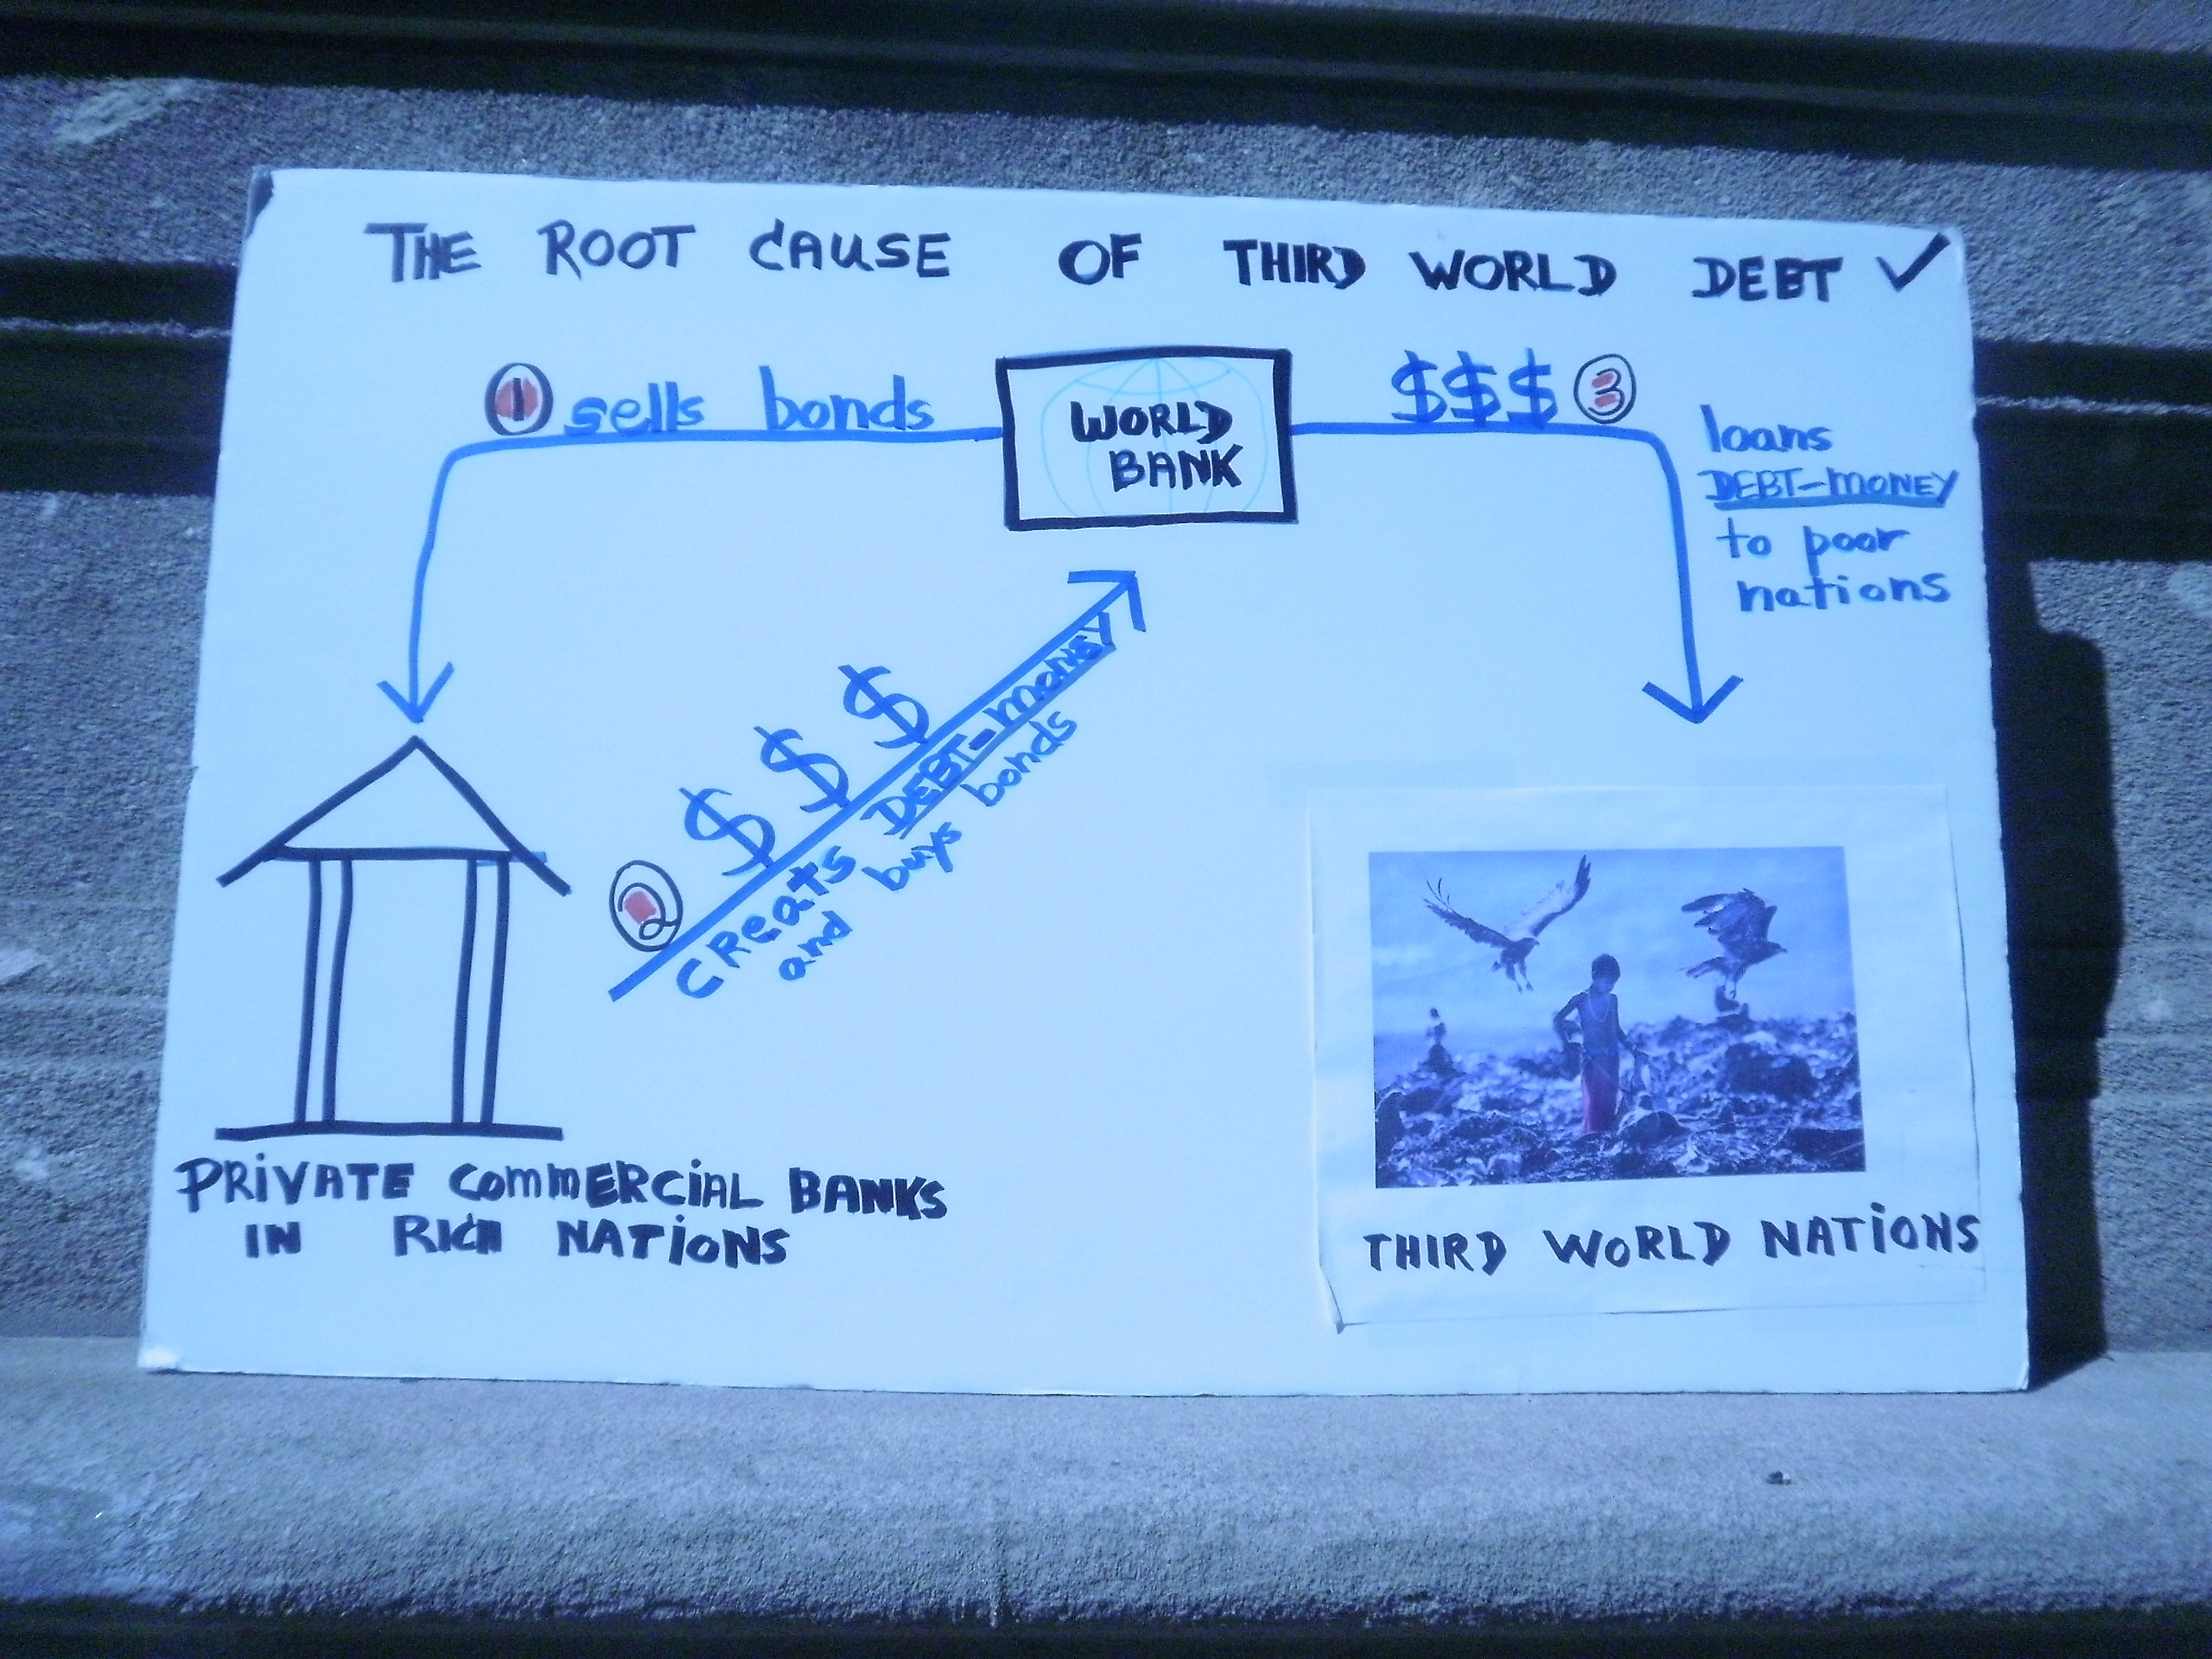 THE ROOT CAUSE OF THIRD WORLD DEBT ✓
1 sells bonds
WORLD
BANK
$$$ 3
loans
DEBT-MONEY
to poor
nations
2
$ $ $
CREATS DEBT-MONEY
and buys bonds
PRIVATE COMMERCIAL BANKS
IN RICH NATIONS
THIRD WORLD NATIONS